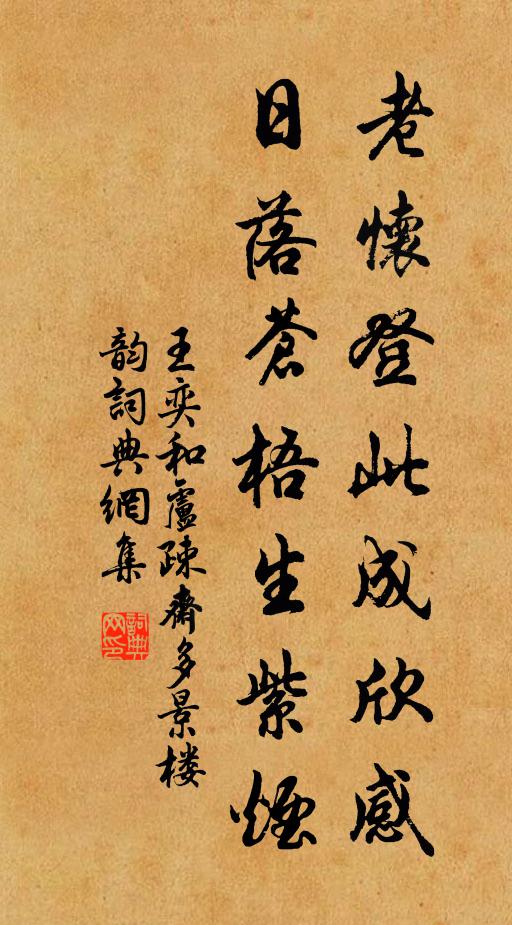 老懷登此成欣感
日落蒼梧生紫煙
王奕和盧疎齋多景楼
韵詞典網集
詞典
网印